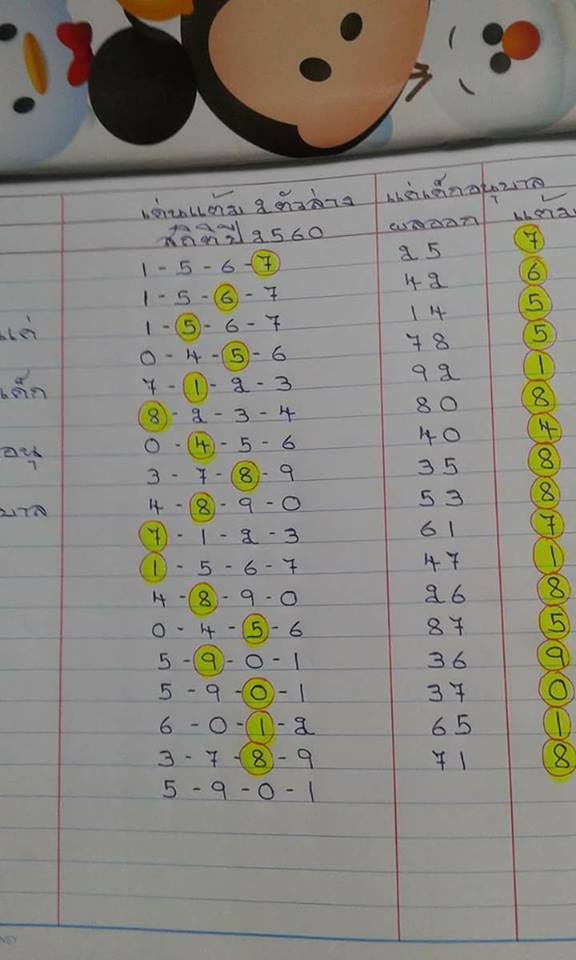 เด่นแต้ม 2 ตัวล่าง แด่เด็กอนุบาล
สถิติปี 2560 ผลออก แต้ม
1 - 5 - 6 - 7 25 7
1 - 5 - 6 - 7 42 6
1 - 5 - 6 - 7 14 5
แด่
0 - 4 - 5 - 6 78 5
7 - 1 - 2 - 3 92 1
เด็ก
8 - 2 - 3 - 4 80 8
0 - 4 - 5 - 6 40 4
อนุ
3 - 7 - 8 - 9 35 8
4 - 8 - 9 - 0 53 8
บาล
7 - 1 - 2 - 3 61 7
1 - 5 - 6 - 7 47 1
4 - 8 - 9 - 0 26 8
0 - 4 - 5 - 6 87 5
5 - 9 - 0 - 1 36 9
5 - 9 - 0 - 1 37 0
6 - 0 - 1 - 2 65 1
3 - 7 - 8 - 9 71 8
5 - 9 - 0 - 1